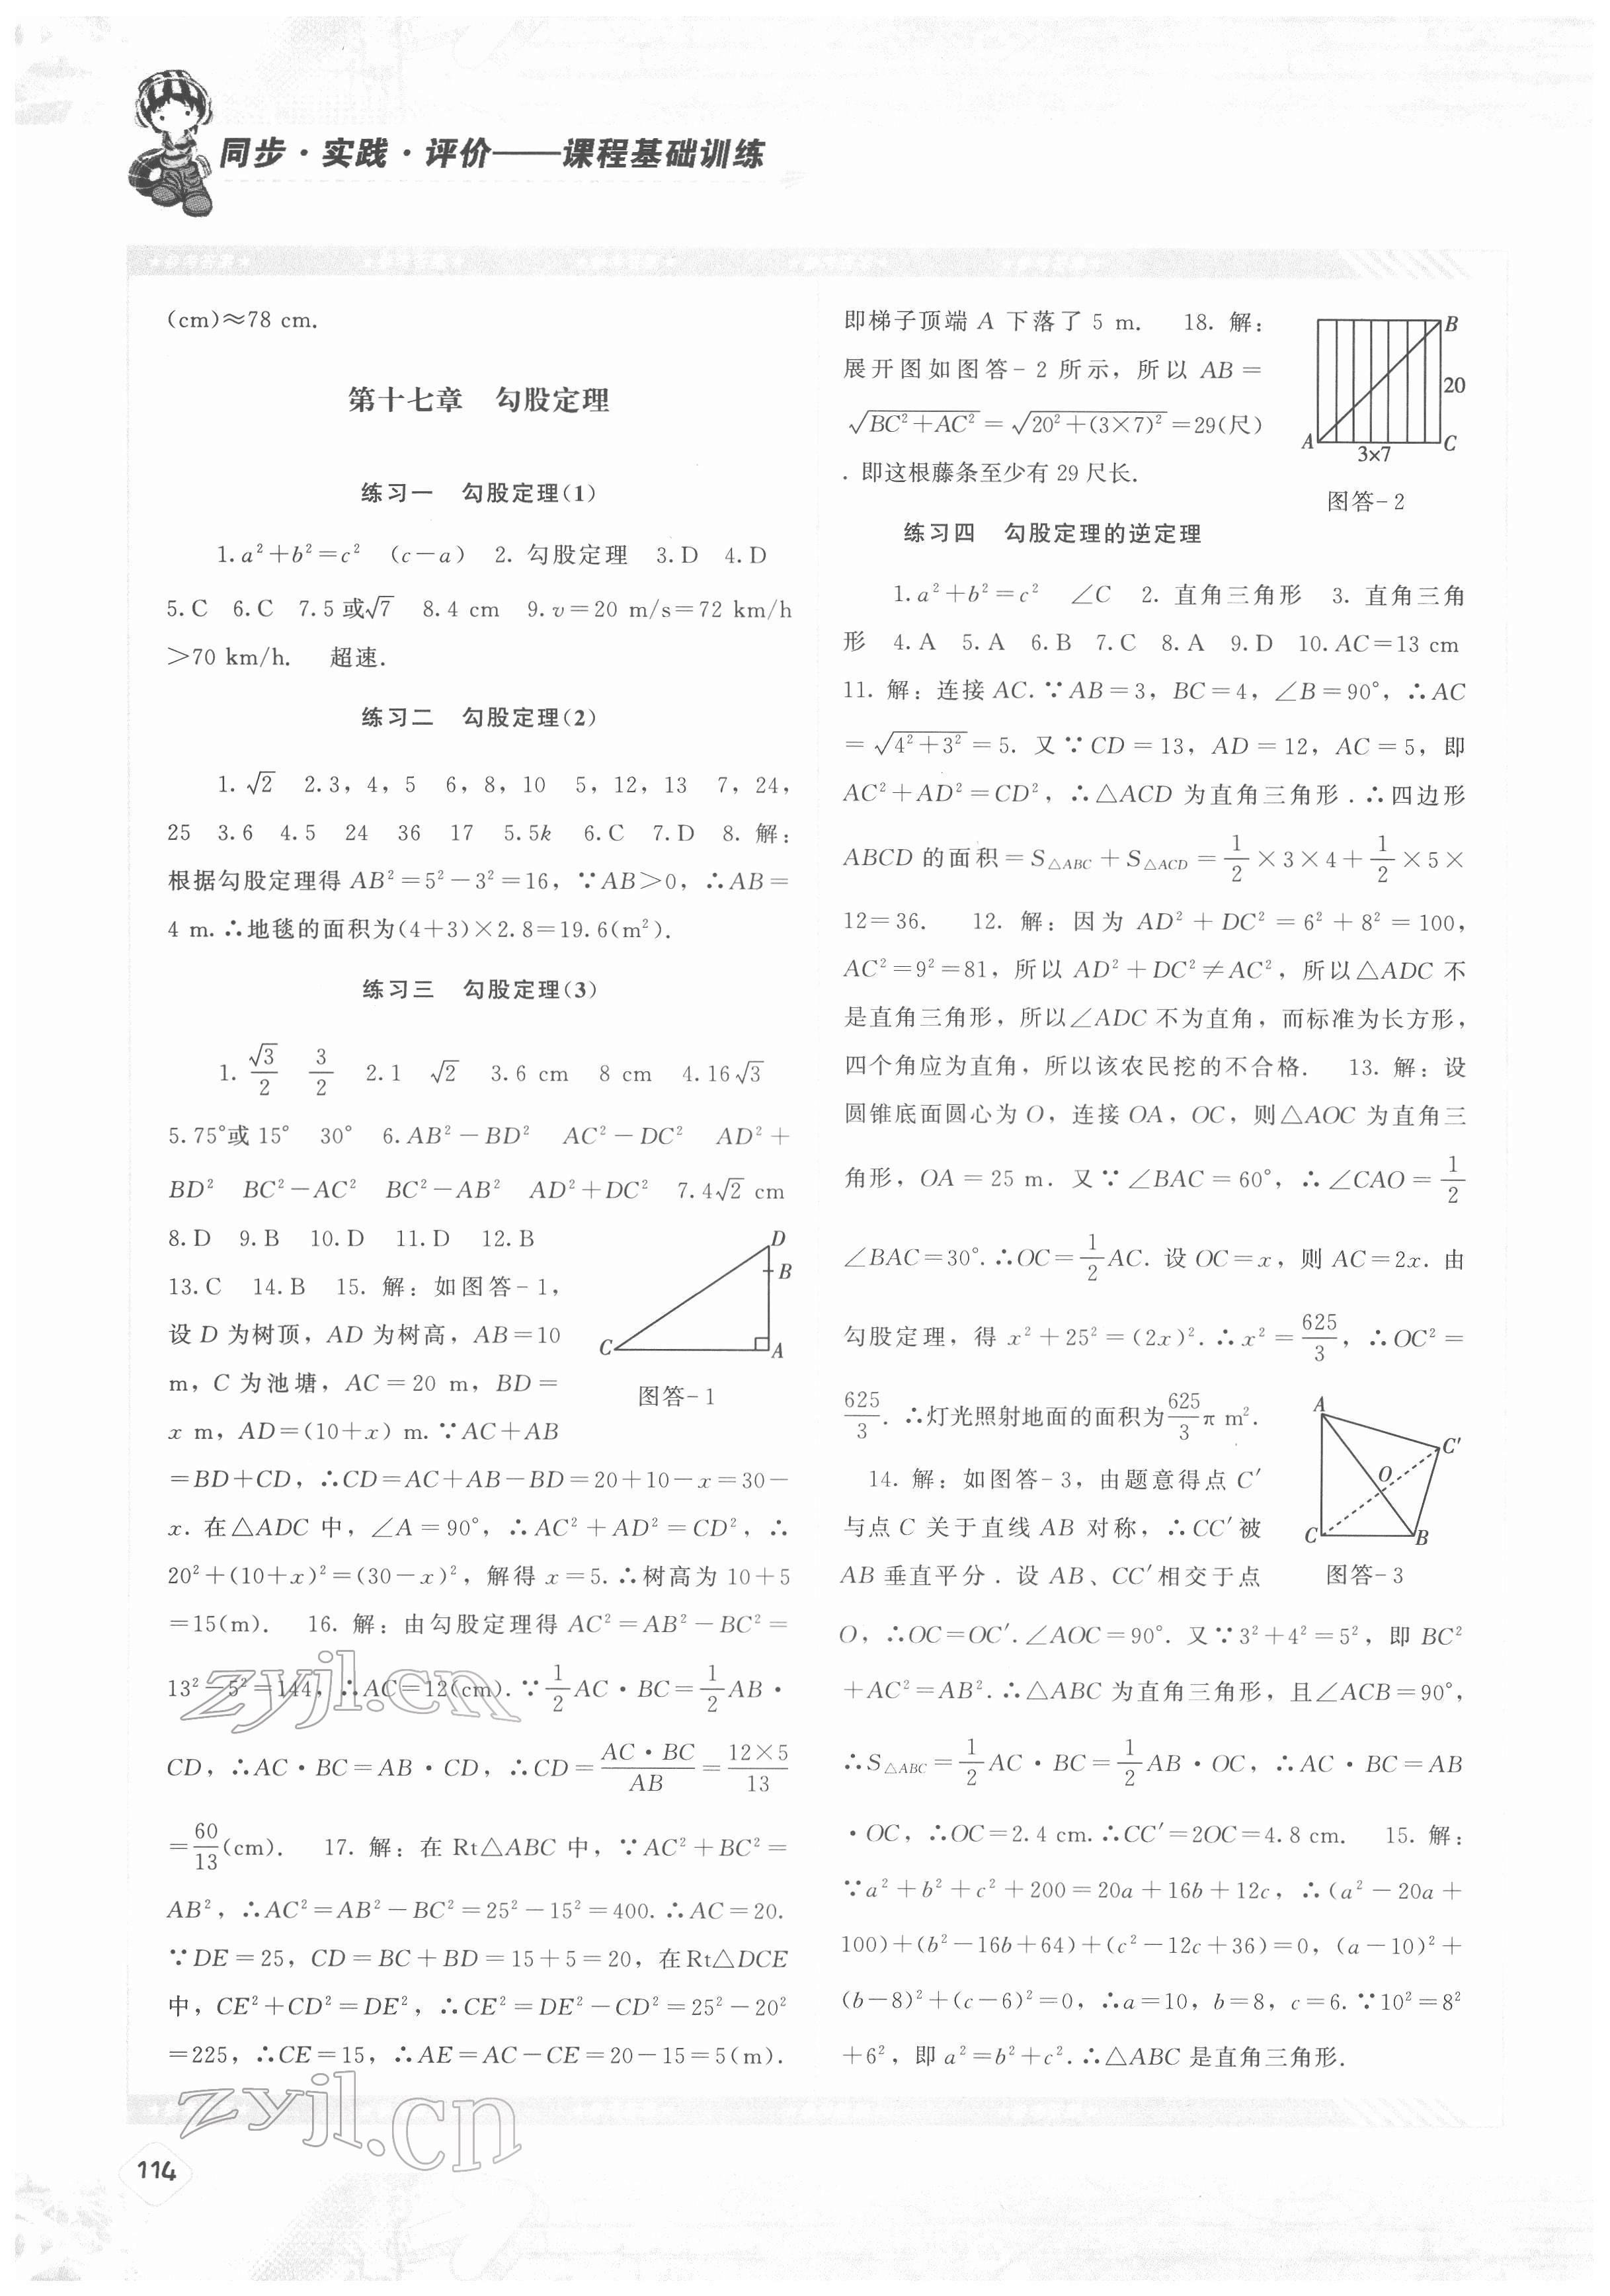 同步·实践·评价——课程基础训练
(cm)≈78 cm.
第十七章　勾股定理
练习一　勾股定理(1)
1.a²+b²=c²　(c－a)　2. 勾股定理　3.D　4.D
5.C　6.C　7.5或√7　8.4 cm　9.v=20 m/s=72 km/h
>70 km/h.　超速.
练习二　勾股定理(2)
1.√2　2.3，4，5　6，8，10　5，12，13　7，24，
25　3.6　4.5　24　36　17　5.5k　6.C　7.D　8. 解：
根据勾股定理得 AB²=5²－3²=16，∵AB>0，∴AB=
4 m.∴地毯的面积为(4+3)×2.8=19.6(m²).
练习三　勾股定理(3)
1. √3/2　3/2　2.1　√2　3.6 cm　8 cm　4.16√3
5.75°或15°　30°　6.AB²－BD²　AC²－DC²　AD²+
BD²　BC²－AC²　BC²－AB²　AD²+DC²　7.4√2 cm
8.D　9.B　10.D　11.D　12.B
13.C　14.B　15. 解：如图答-1，
设 D 为树顶，AD 为树高，AB=10
m，C 为池塘，AC=20 m，BD=
x m，AD=(10+x) m.∵AC+AB
D
B
C
A
图答-1
=BD+CD，∴CD=AC+AB－BD=20+10－x=30－
x. 在△ADC 中，∠A=90°，∴AC²+AD²=CD²，∴
20²+(10+x)²=(30－x)²，解得 x=5.∴树高为 10+5
=15(m).　16. 解：由勾股定理得 AC²=AB²－BC²=
13²－5²=144，∴AC=12(cm).∵1/2 AC·BC=1/2 AB·
CD，∴AC·BC=AB·CD，∴CD=AC·BC/AB=12×5/13
=60/13(cm).　17. 解：在 Rt△ABC 中，∵AC²+BC²=
AB²，∴AC²=AB²－BC²=25²－15²=400.∴AC=20.
∵DE=25，CD=BC+BD=15+5=20，在Rt△DCE
中，CE²+CD²=DE²，∴CE²=DE²－CD²=25²－20²
=225，∴CE=15，∴AE=AC－CE=20－15=5(m).
即梯子顶端 A 下落了 5 m.　18. 解：
展开图如图答-2 所示，所以 AB=
√(BC²+AC²)=√(20²+(3×7)²)=29(尺)
. 即这根藤条至少有 29 尺长.
B
20
A
3×7
C
图答-2
练习四　勾股定理的逆定理
1.a²+b²=c²　∠C　2. 直角三角形　3. 直角三角
形　4.A　5.A　6.B　7.C　8.A　9.D　10.AC=13 cm
11. 解：连接 AC.∵AB=3，BC=4，∠B=90°，∴AC
=√(4²+3²)=5. 又∵CD=13，AD=12，AC=5，即
AC²+AD²=CD²，∴△ACD 为直角三角形.∴四边形
ABCD 的面积=S△ABC+S△ACD=1/2×3×4+1/2×5×
12=36.　12. 解：因为 AD²+DC²=6²+8²=100，
AC²=9²=81，所以 AD²+DC²≠AC²，所以△ADC 不
是直角三角形，所以∠ADC 不为直角，而标准为长方形，
四个角应为直角，所以该农民挖的不合格.　13. 解：设
圆锥底面圆心为 O，连接 OA，OC，则△AOC 为直角三
角形，OA=25 m. 又∵∠BAC=60°，∴∠CAO=1/2
∠BAC=30°.∴OC=1/2 AC. 设 OC=x，则 AC=2x. 由
勾股定理，得 x²+25²=(2x)².∴x²=625/3，∴OC²=
625/3.∴灯光照射地面的面积为625/3π m².
14. 解：如图答-3，由题意得点 C′
与点 C 关于直线 AB 对称，∴CC′被
AB 垂直平分. 设 AB、CC′相交于点
A
C′
O
C
B
图答-3
O，∴OC=OC′.∠AOC=90°. 又∵3²+4²=5²，即 BC²
+AC²=AB².∴△ABC 为直角三角形，且∠ACB=90°，
∴S△ABC=1/2 AC·BC=1/2 AB·OC，∴AC·BC=AB
·OC，∴OC=2.4 cm.∴CC′=2OC=4.8 cm.　15. 解：
∵a²+b²+c²+200=20a+16b+12c，∴(a²－20a+
100)+(b²－16b+64)+(c²－12c+36)=0，(a－10)²+
(b－8)²+(c－6)²=0，∴a=10，b=8，c=6.∵10²=8²
+6²，即 a²=b²+c².∴△ABC 是直角三角形.
zyjl.cn
zyjl.cn
114